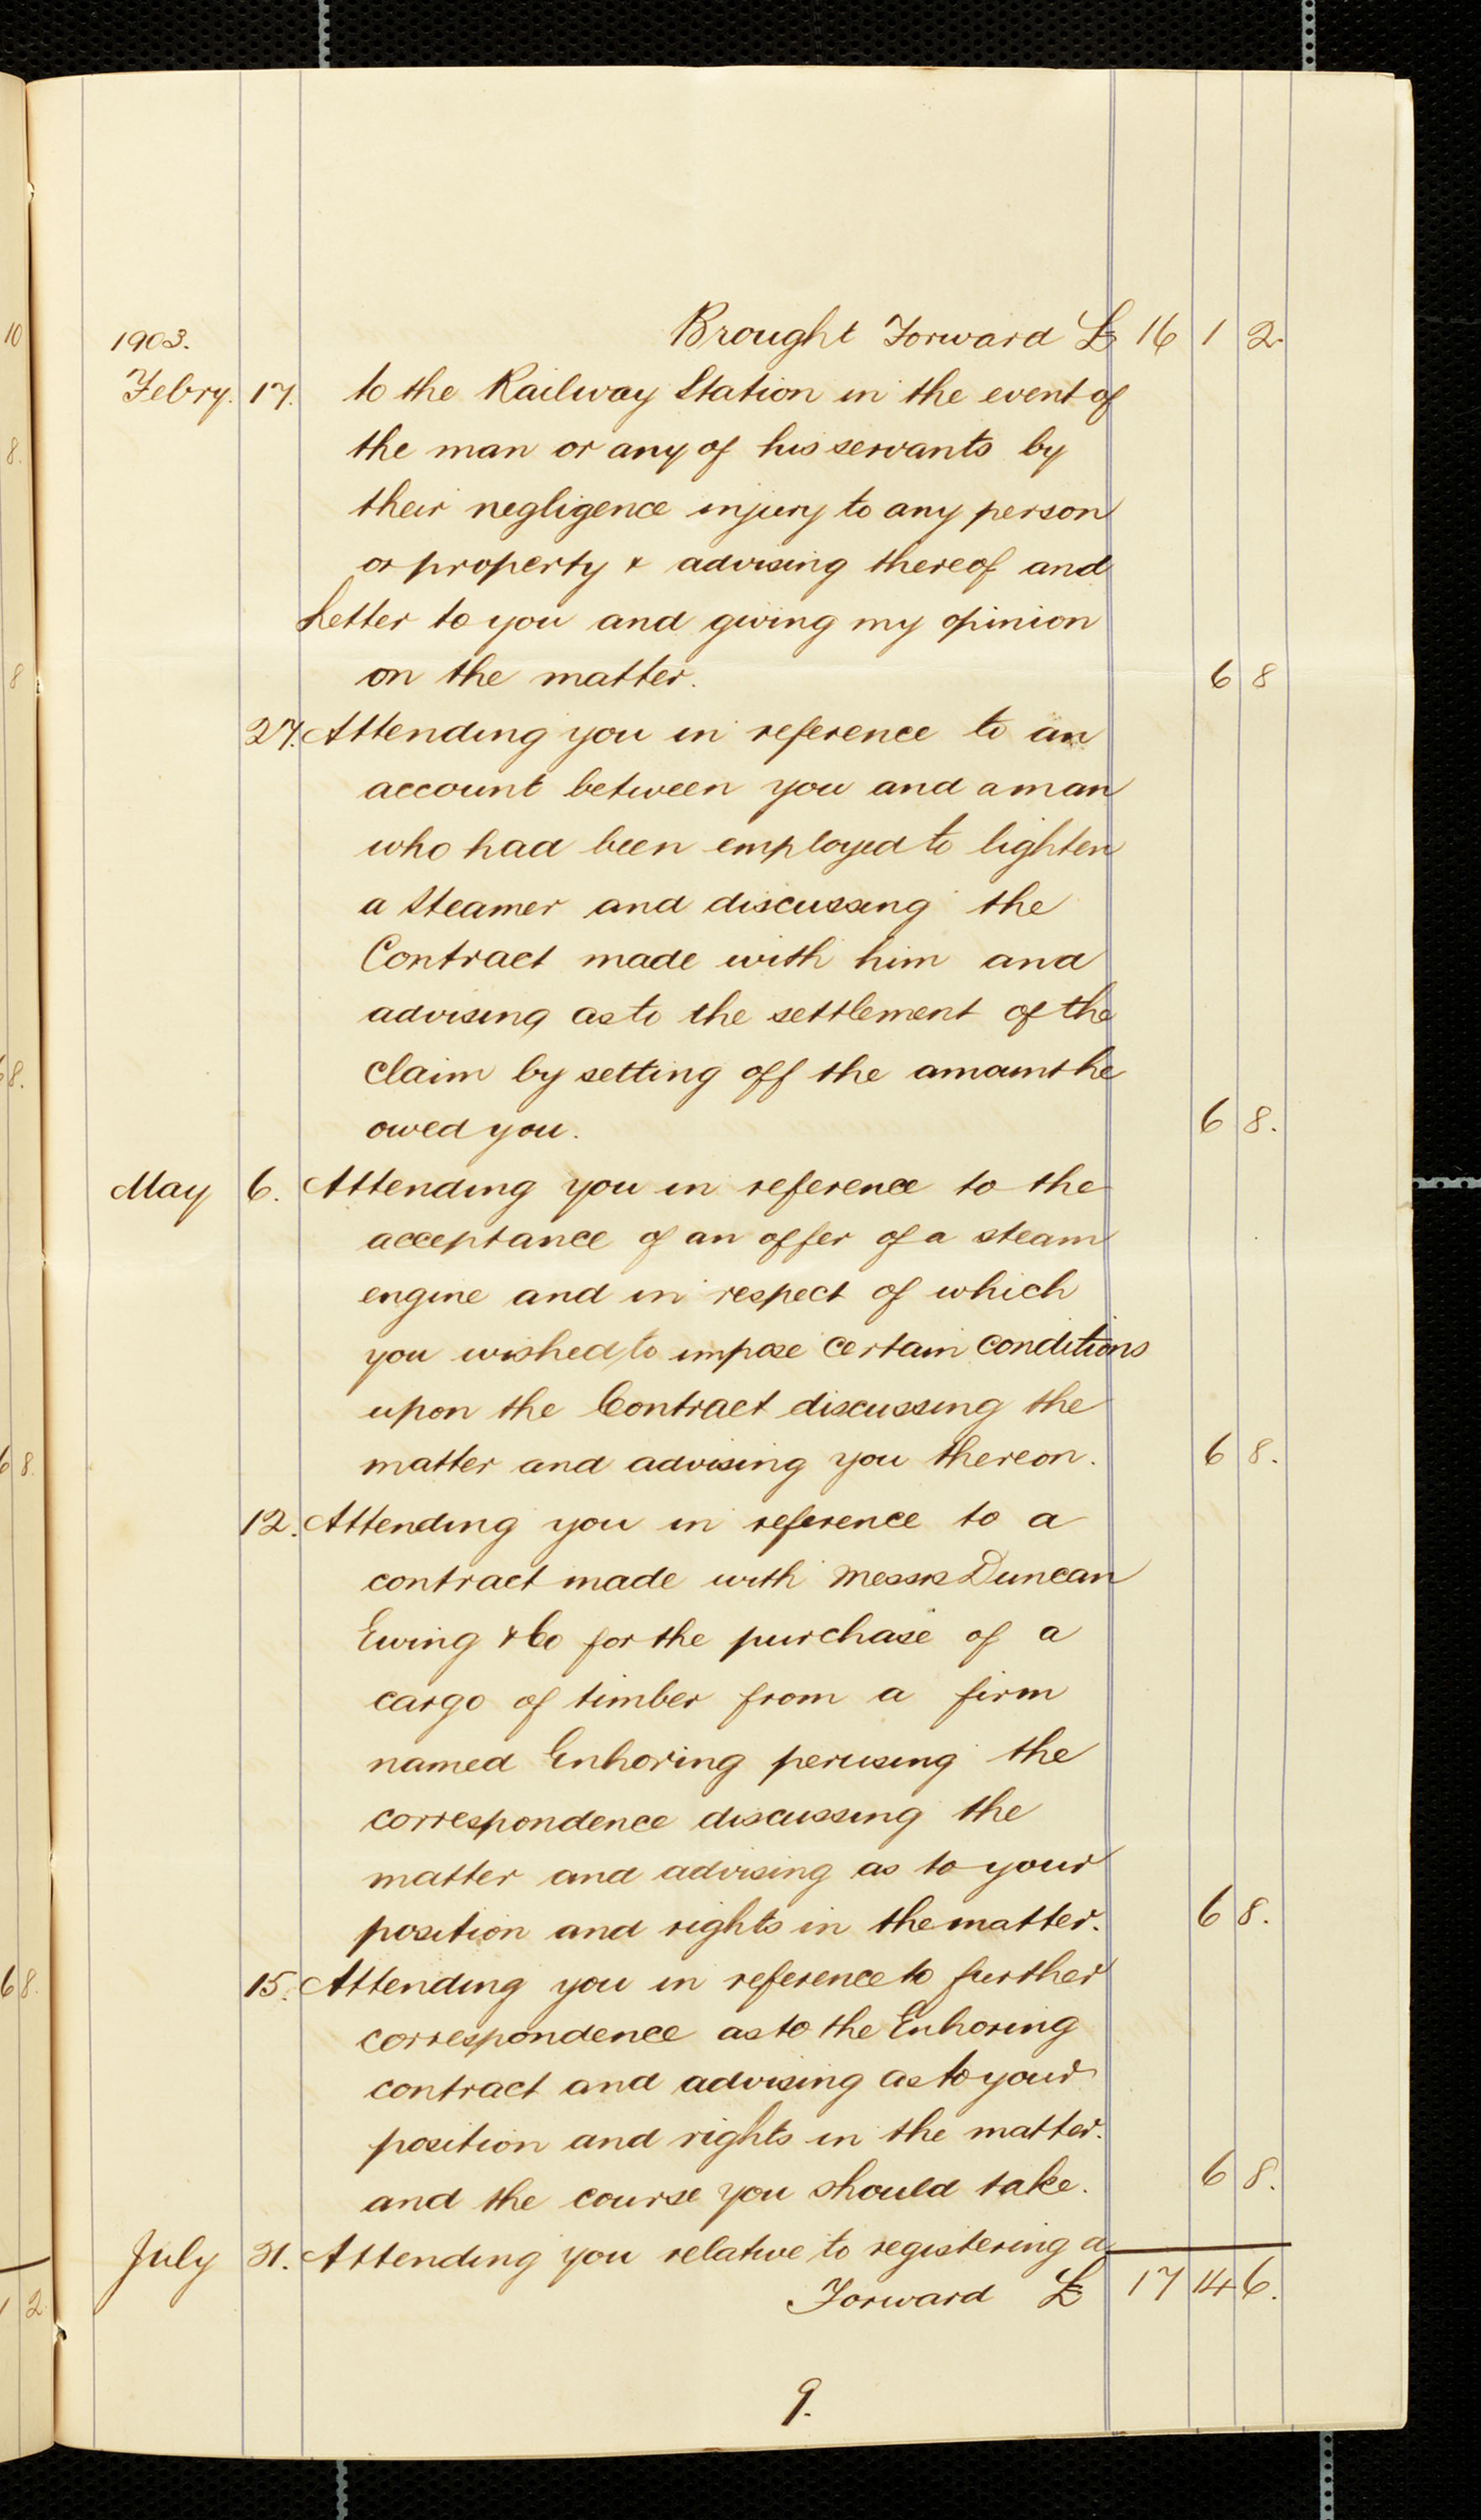 Brought Forward £ 16 1 2.
1903.
Febry. 17. to the Railway Station in the event of
the man or any of his servants by
their negligence injury to any person
or property & advising thereof and
Letter to you and giving my opinion
on the matter. 6 8
27. Attending you in reference to an
account between you and a man
who had been employed to lighten
a Steamer and discussing the
Contract made with him and
advising as to the settlement of the
claim by setting off the amount he
owed you. 6 8.
May 6. Attending you in reference to the
acceptance of an offer of a steam
engine and in respect of which
you wished to impose certain conditions
upon the Contract discussing the
matter and advising you thereon. 6 8.
12. Attending you in reference to a
contract made with Messrs Duncan
Ewing & Co for the purchase of a
cargo of timber from a firm
named Enhoring perusing the
correspondence discussing the
matter and advising as to your
position and rights in the matter. 6 8.
15. Attending you in reference to further
correspondence as to the Enhoring
contract and advising as to your
position and rights in the matter.
and the course you should take. 6 8.
July 31. Attending you relative to registering a
Forward £ 17 14 6.
9.